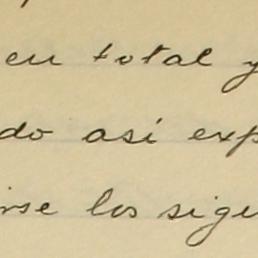 en total y
do así exp
rse los sigu